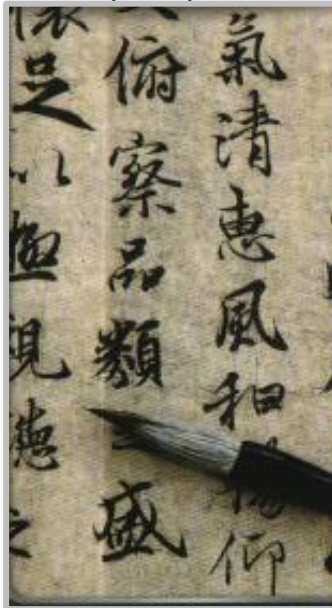 氣清惠風和暢仰
俯察品類盛
懷足以極視聽之